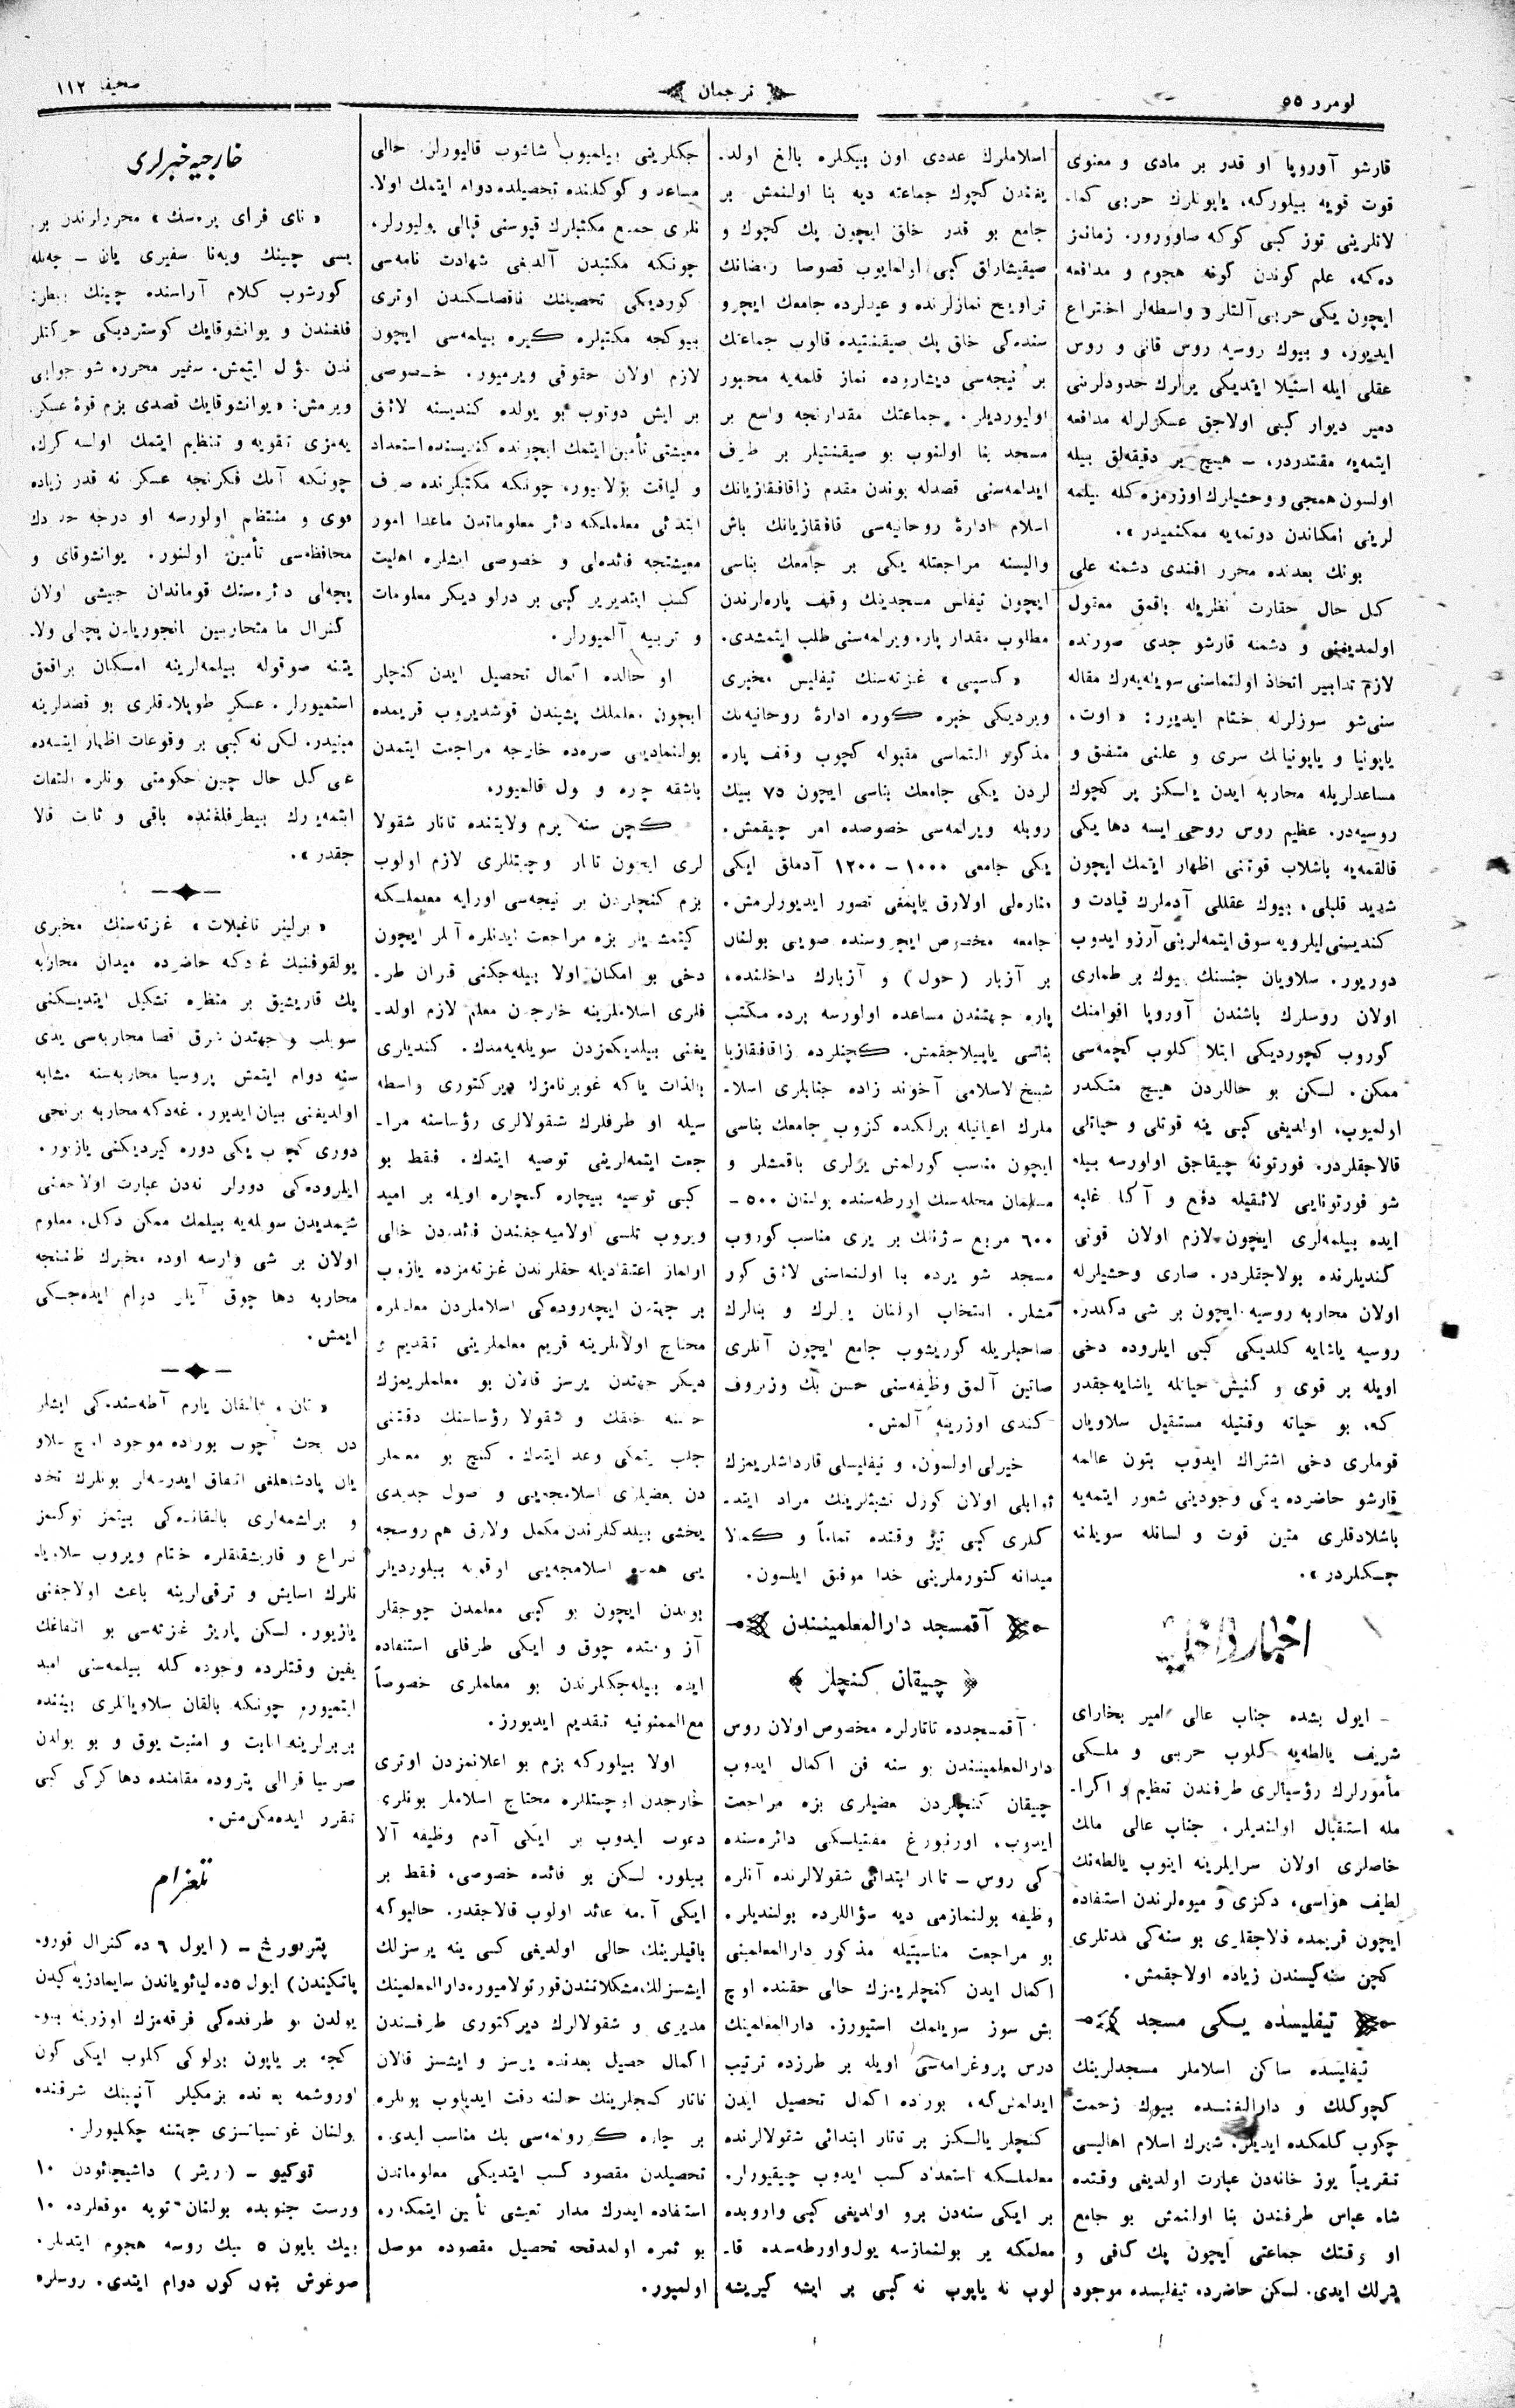 نومرو ٥٥
ترجمان
صحيفه ١١٢
قارشو آوروپا او قدر بر مادی و معنوی
قوت قويه بيلوركه، ياپونلرك حربی كما-
لاتلرينی توز كبی كوكه صاوورور. زمانمز
ده‌كه، علم كوندن كونه هجوم و مدافعه
ايچون يكی حربی آلتلر و واسطه‌لر اختراع
ايديور، و بيوك روسيه روس قانی و روس
عقلی ايله استيلا ايتديكی يرلرك حدودلرينی
دمير ديوار كبی اولاجق عسكرلرله مدافعه
ايتمه‌يه مقتدردر. – هيچ بر دقيقه‌لق بيله
اولسون همجی و وحشيلرك اوزرمزه كله بيلمه
لرينی امكاندن دونمه‌يه ممكنميدر».
بونك بعدنده محرر افندی دشمنه علی
كل حال حقارت نظريله باقمق معقول
اولمديغنی و دشمنه قارشو جدی صورتده
لازم تدابير اتخاذ اولنماسنی سويله‌يه‌رك مقاله
سنی شو سوزلرله ختام ايديور: «اوت،
ياپونيا و ياپونيانك سری و علنی متفق و
مساعدلريله محاربه ايدن يالكز بر كچوك
روسيه‌در. عظيم روس روحی ايسه دها يكی
قالقمه‌يه باشلاب قوتنی اظهار ايتمك ايچون
شديد قلبلی، بيوك عقللی آدملرك قيادت و
كنديسنی ايلرويه سوق ايتمه‌لرينی آرزو ايدوب
دوريور. سلاويان جنسنك بيوك بر طماری
اولان روسلرك باشندن آوروپا اقوامنك
كوروب كچورديكی ابتلا كلوب كچمه‌سی
ممكن. لكن بو حاللردن هيچ متكدر
اولميوب، اولديغی كبی ينه قوتلی و حياتلی
قالاجقلردر. فورتونه چيقاجق اولورسه بيله
شو فورتونايی لائقيله دفع و آكا غلبه
ايده بيلمه‌لری ايچون لازم اولان قوتی
كنديلرنده بولاجقلردر. صاری وحشيلرله
اولان محاربه روسيه ايچون بر شی دكلدر.
روسيه ياشايه كلديكی كبی ايلروده دخی
اويله بر قوی و كنيش حياتله ياشايه‌جقدر
كه، بو حياته وقتيله مستقبل سلاويان
قوملری دخی اشتراك ايدوب بتون عالمه
قارشو حاضرده يكی وجودينی شعور ايتمه‌يه
باشلادقلری متين قوت و لسانله سويلنه
جكلردر».
اخبار داخليه
– ايول بشده جناب عالی امير بخارای
شريف يالطه‌يه كلوب حربی و ملكی
مأمورلرك رؤسيالری طرفندن تعظيم و اكرا-
مله استقبال اولنديلر. جناب عالی مالك
خاصلری اولان سرايلرينه اينوب يالطه‌نك
لطيف هواسی، دكزی و ميوه‌لرندن استفاده
ايچون قريمده قالاجقلری بو سنه‌كی مدتلری
كچن سنه‌كيسندن زياده اولاجقمش.
تيفليسده يكی مسجد
تيفليسده ساكن اسلاملر مسجدلرينك
كچوكلك و دارالغنده بيوك زحمت
چكوب كلمكده ايديلر. شهرك اسلام اهاليسی
تقريباً يوز خانه‌دن عبارت اولديغی وقتده
شاه عباس طرفندن بنا اولنمش بو جامع
او وقتك جماعتی ايچون پك كافی و
يرلك ايدی. لكن حاضرده تيفليسده موجود
اسلاملرك عددی اون بيكلره بالغ اولد-
يغندن كچوك جماعته ديه بنا اولنمش بر
جامع بو قدر خلق ايچون پك كچوك و
صيقيشاراق كبی اولمايوب قصوصا رمضانك
تراويح نمازلرنده و عيدلرده جامعك ايچرو
سنده‌كی خلق پك صيقنتيده قالوب جماعتك
بر نيجه‌سی ديشاروده نماز قلمه‌يه مجبور
اوليورديلر. جماعتك مقدارنجه واسع بر
مسجد بنا اولنوب بو صيقنتيلر بر طرف
ايدلمه‌سنی قصدله بوندن مقدم زاقافقازيانك
اسلام ادارۀ روحانيه‌سی قافقازيانك باش
واليسنه مراجعتله يكی بر جامعك بناسی
ايچون تيفليس مسجدينك وقف پاره‌لرندن
مطلوب مقدار پاره ويرلمه‌سنی طلب ايتمشدی.
«كاسپی» غزته‌سنك تيفليس مخبری
ويرديكی خبره كوره ادارۀ روحانيه‌نك
مذكور التماسی مقبوله كچوب وقف پاره
لردن يكی جامعك بناسی ايچون ٧٥ بيك
روبله ويرلمه‌سی خصوصده امر چيقمش.
يكی جامعی ١٠٠٠ – ١٢٠٠ آدملق ايكی
مناره‌لی اولارق ياپمغی تصور ايديورلرمش.
جامعه مخصوص ايچروسنده صويی بولنان
بر آزبار (حول) و آزبارك داخلنده،
پاره جهتندن مساعده اولورسه برده مكتب
بناسی ياپيلاجقمش. كچنلرده زاقافقازيا
شيخ لاسلامی آخوند زاده جنابلری اسلا-
ملرك اعيانيله برلكده كزوب جامعك بناسی
ايچون مناسب كورلمش يرلری باقمشلر و
مسلمان محله‌سنك اورطه‌سنده بولنان ٥٠٠ –
٦٠٠ مربع سژنلك بر يری مناسب كوروب
مسجد شو يرده بنا اولنماسنی لائق كور
مشلر. انتخاب اولنان يرلرك و بنالرك
صاحبلريله كوريشوب جامع ايچون آنلری
صاتين آلمق وظيفه‌سنی حسن بك وزيروف
كندی اوزرينه آلمش.
خيرلی اولسون، و تيفليسلی قارداشلريمزك
ثوابلی اولان كوزل تشبثلرينك مراد ايتد-
كلری كبی تيز وقتده تماماً و كمالا
ميدانه كتورملرينی خدا موفق ايلسون.
آقمسجد دارالمعلمينندن
چيقان كنچلر
آقمسجدده تاتارلره مخصوص اولان روس
دارالمعلمينندن بو سنه فن اكمال ايدوب
چيقان كنچلردن بعضيلری بزه مراجعت
ايدوب، اورنبورغ مفتيلكی دائره‌سنده
كی روس – تاتار ابتدائی شقولالرنده آنلره
وظيفه بولنمازمی ديه سؤاللرده بولنديلر.
بو مراجعت مناسبتيله مذكور دارالمعلمينی
اكمال ايدن كنچلريمزك حالی حقنده اوچ
بش سوز سويلمك استيورز. دارالمعلمينك
درس پروغرامه‌سی اويله بر طرزده ترتيب
ايدلمش كه، بورده اكمال تحصيل ايدن
كنچلر يالكز بر تاتار ابتدائی شقولالرنده
معلملكه استعداد كسب ايدوب چيقيورلر.
بر ايكی سنه‌دن برو اولديغی كبی وارويده
معلملكه ير بولنمازسه يول واورطه‌سده قا-
لوب نه ياپوب نه كبی بر ايشه كيريشه
جكلرينی بيلميوب شاشوب قاليورلر. حالی
مساعد و كوكلنده تحصيلده دوام ايتمك اولا-
نلری جميع مكتبلرك قپوسنی قپالی بوليورلر.
چونكه مكتبدن آلديغی شهادت نامه‌سی
كورديكی تحصيلنك ناقصلكندن اوتری
بيوكجه مكتبلره كيره بيلمه‌سی ايچون
لازم اولان حقوقی ويرميور. خصوصی
بر ايش دوتوب بو يولده كنديسنه لائق
معيشتی تأمين ايتمك ايچونده كنديسنده استعداد
و لياقت بولاميور، چونكه مكتبلرنده صرف
ابتدائی معلملكه دائر معلوماتدن ماعدا امور
معيشتجه فائده‌لی و خصوصی ايشلره اهليت
كسب ايتديرير كبی بر درلو ديكر معلومات
و تربيه آلميورلر.
او حالده اكمال تحصيل ايدن كنچلر
ايچون معلملك پشيندن قوشديروب قريمده
بولنماديغی صرده خارجه مراجعت ايتمدن
باشقه چاره و يول قالميور.
كچن سنه پرم ولايتنده تاتار شقولا
لری ايچون تاتار اوچيتللری لازم اولوب
بزم كنچلردن بر نيجه‌سی اورايه معلملكه
كيتمشديلر بزه مراجعت ايدنلره آنلر ايچون
دخی بو امكان اولا بيله‌جكنی قزان طر-
فلری اسلاملرينه خارجدن معلم لازم اولد-
يغنی بيلديكمزدن سويله‌يه‌مدك. كنديلری
بالذات ياكه غوبرنامزك ديركتوری واسطه
سيله او طرفلرك شقولالری رؤساسنه مرا-
جعت ايتمه‌لرينی توصيه ايتدك. فقط بو
كبی توصيه بيچاره كنچلره اويله بر اميد
ويروب تلسی اولاميه‌جغندن فائده‌دن خالی
اولماز اعتقاديله حقلرندن غزته‌مزده يازوب
بر جهتدن ايچه‌روده‌كی اسلاملردن معلملره
محتاج اولانلرينه قريم معلملرينی تقديم و
ديكر جهتدن يرسز قالان بو معلملريمزك
حالنه خلقك و شقولا رؤساسنك دقتنی
جلب ايتمكی وعد ايتدك. كنچ بو معلملر
دن بعضيلری اسلامجه‌يی و اصول جديدی
يخشی بيلدكلرندن مكمل اولارق هم روسجه
يی هم‌ده اسلامجه‌يی اوقوده بيلورديلر
بوندن ايچون بو كبی معلمدن چوجقلر
آز وقتده چوق و ايكی طرفلی استفاده
ايده بيله‌جكلرندن بو معلملری خصوصاً
مع‌الممنونيه تقديم ايديورز.
اولا بيلوركه بزم بو اعلانمزدن اوتری
خارجدن اوچيتللره محتاج اسلاملر بونلری
دعوت ايدوب بر ايكی آدم وظيفه آلا
بيلور. لكن بو فائده خصوصی، فقط بر
ايكی آدمه عائد اولوب قالاجقدر. حالبوكه
باقيلرينك حالی اولديغی كبی ينه يرسزلك
ايشسزلك مشكلاتندن قورتولاميور. دارالمعلمينك
مديری و شقولالرك ديركتوری طرفندن
اكمال تحصيل بعدنده يرسز و ايشسز قالان
تاتار كنچلرينك حالنه دقت ايديلوب بونلره
بر چاره كورونمه‌سی پك مناسب ايدی.
تحصيلدن مقصود كسب ايتديكی معلوماتدن
استفاده ايدرك مدار تعيشی تأمين ايتمكدر.
بو ثمره اولمدقجه تحصيل مقصوده موصل
اولميور.
خارجيه خبرلری
«نای فرای پره‌سنك» محررلرندن بر
يسی چينك ويه‌نا سفيری يان – چه‌نله
كورشوب كلام آراسنده چينك بيطر-
فلغندن و يوانشوقايك كوسترديكی حركتلر
ندن سؤال ايتمش. سفير محرره شو جوابی
ويرمش: «يوانشوقايك قصدی بزم قوۀ عسكر-
يه‌مزی تقويه و تنظيم ايتمك اولسه كرك.
چونكه آنك فكرنجه عسكر نه قدر زياده
قوی و منتظم اولورسه او درجه حدودك
محافظه‌سی تأمين اولنور. يوانشوقای و
پچه‌لی دائره‌سنك قوماندان جيشی اولان
كنرال ما متحاربين مانجوريادن پچلی ولا-
يتنه صوقوله بيلمه‌لرينه امكان براقمق
استميورلر. عسكر طوپلادقلری بو قصدلرينه
مبنيدر. لكن نه كبی بر وقوعات اظهار ايتسه‌ده
علی كل حال چين حكومتی بونلره التفات
ايتميه‌رك بيطرفلغنده باقی و ثابت قالا
جقدر».
«برلينر تاغبلات» غزته‌سنك مخبری
پولقوفنيك غه‌دكه حاضرده ميدان محاربه
پك قاريشيق بر منظره تشكيل ايتديكنی
سويلب و جهتدن شرق اقصا محاربه‌سی يدی
سنه دوام ايتمش پروسيا محاربه‌سنه مشابه
اولديغنی بيان ايديور. غه‌دكه محاربه برنجی
دوری كچوب يكی دوره كيرديكنی يازيور.
ايلروده‌كی دورلر نه‌دن عبارت اولاجغنی
شيمديدن سويله‌يه بيلمك ممكن دكل. معلوم
اولان بر شی وارسه اوده مخبرك ظننجه
محاربه دها چوق آيلر دوام ايده‌جكی
ايمش.
«تان» بالقان يارم آطه‌سنده‌كی ايشلر
دن بحث آچوب بوراده موجود اوچ سلاو
يان پادشاهلغی اتفاق ايدرسه‌لر بونلرك اتحاد
و برلشمه‌لری بالقانده‌كی بيتمز توكنمز
نزاع و قاريشقلقلره ختام ويروب سلاويا-
نلرك اسايش و ترقی‌لرينه باعث اولاجغنی
يازيور. لكن پاريژ غزته‌سی بو اتفاقك
يقين وقتلرده وجوده كله بيلمه‌سنی اميد
ايتميور، چونكه بالقان سلاويانلری بيننده
بربرلرينه انابت و امنيت يوق و بو يولدن
صربيا قرالی پتروده مقامنده دها كركی كبی
تقرر ايده‌مه‌مش.
تلغرام
پتربورغ – (ايول ٦ ده كنرال قورو-
پاتكيندن) ايول ٥ده ليائوياندن سايمادزيه كيدن
يولدن بو طرفده‌كی فرقه‌مزك اوزرينه يو-
كجه بر ياپون برلوكی كلوب ايكی كون
اوروشمه بعدنده بزمكيلر آنپينك شرقنده
بولنان غوتسياتسزی جهتنه چكليورلر.
توكيو – (ريتر) داشيچائودن ١٠
ورست جنوبده بولنان توپه موقعلرده ١٠
بيك ياپون ٥ بيك روسه هجوم ايتديلر.
صوغوش بتون كون دوام ايتدی. روسلره